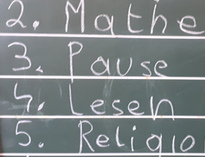 2. Mathe
3. Pause
4. Lesen
5. Religio